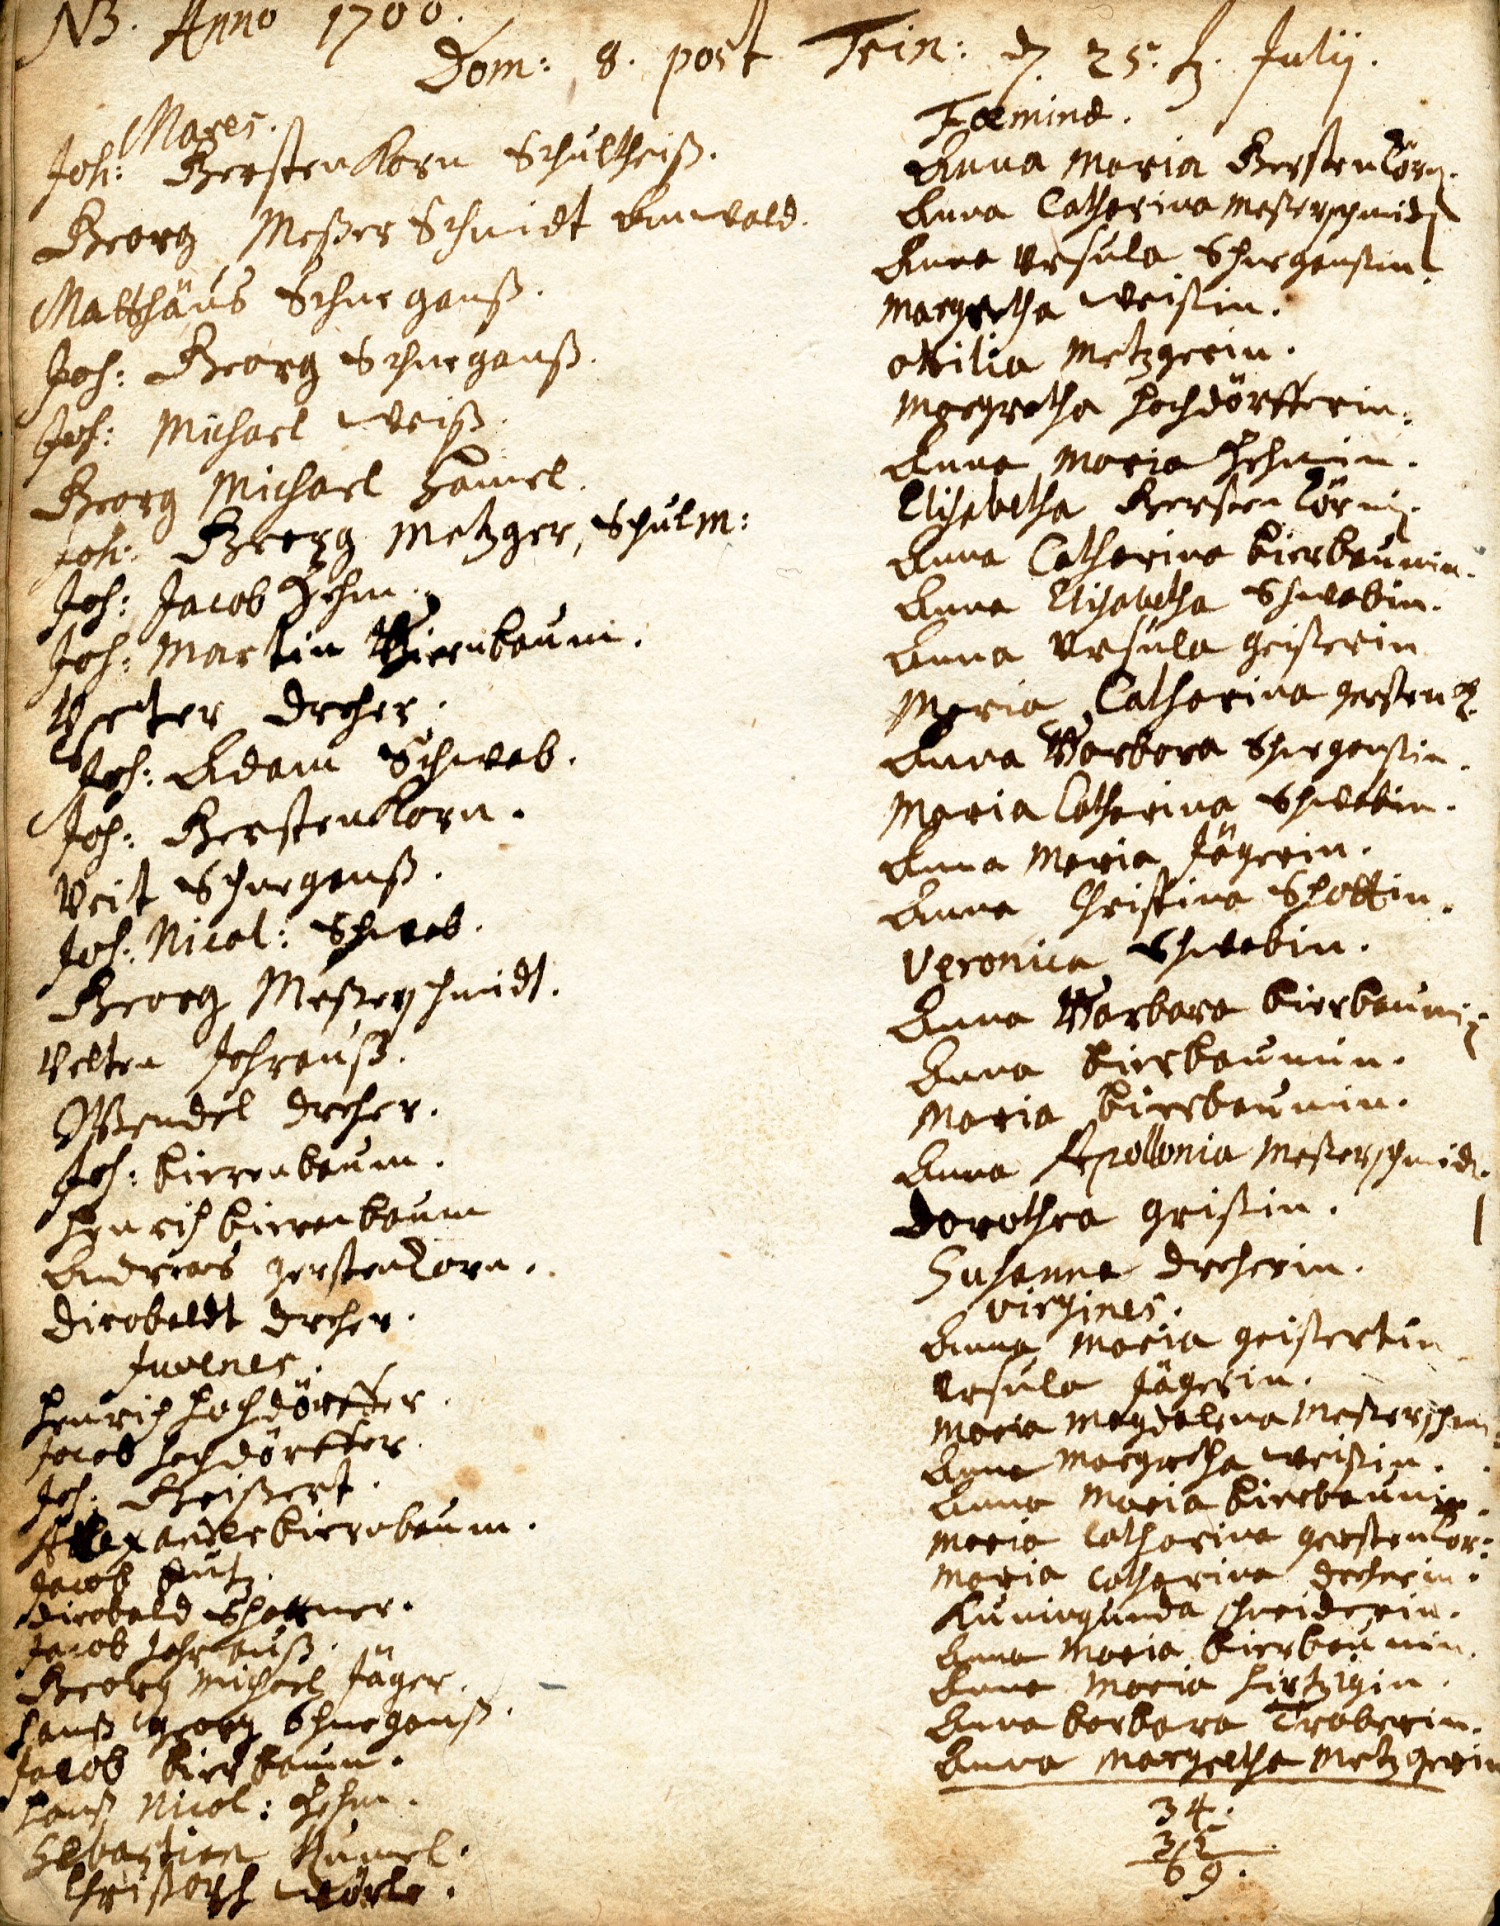 NB. Anno 1700.
Dom: 8. post Trin: d. 25. Julij.
Mares.
Joh: Gerstenkorn Schultheiß.
Georg Meßerschmidt Anwald.
Matthäus Schneganß.
Joh: Georg Schneganß.
Joh: Michael Weiß.
Georg Michael Hamel.
Joh: Georg Metzger, Schulm:
Joh: Jacob Hehm.
Joh: Martin Biernbaum.
Peter Dreher.
Joh: Adam Schwab.
Joh: Gerstenkorn.
Veit Schneganß.
Joh: Nicol: Schwab.
Georg Meßerschmidt.
Velten Jehrauß.
Wendel Dreher.
Joh: Bierenbaum.
Henrich Bierenbaum
Andreas Gerstenkorn.
Dirobaldt Dreher.
Juvenes.
Henrich Hochdörffer.
Jacob Hochdörffer.
Joh: Geißert.
Alexander Biernbaum.
Jacob Butz.
Dirobald Schottner.
Jacob Jehrauß.
Georg Michael Jäger.
Hanß Georg Schneganß.
Jacob Bierbaum.
Hanß Nicol: Hehm.
Sebastian Humel.
Christoph Wörle.
Fœminæ.
Anna Maria Gerstenkörn.
Anna Catharina Meßerschmidt
Anna Ursula Schneganßin.
Margretha Weißin.
Ottilia Metzgerin.
Margretha Hochdörfferin.
Anna Maria Hehmin.
Elisabetha Gerstenkörnin.
Anna Catharina Bierbaumin.
Anna Elisabetha Schwabin.
Anna Ursula Geißerin
Maria Catharina Gerstenk.
Anna Barbara Schneganßin.
Maria Catharina Schwabin.
Anna Maria Jägerin.
Anna Christina Schottin.
Veronica Schwabin.
Anna Barbara Bierbaumin
Anna Bierbaumin.
Maria Bierbaumin.
Anna Apollonia Meßerschmid.
Dorothea Grißin.
Susanna Dreherin.
Virgines.
Anna Maria Geißertin
Ursula Jägerin.
Maria Magdalena Meßerschm:
Anna Margretha Weißin.
Anna Maria Bierbaumin.
Maria Catharina Gerstenkor:
Maria Catharina Dreherin.
Kuningunda Schneiderin.
Anna Maria Bierbaumin.
Anna Maria Hirtzigin.
Anna Barbara Traberin.
Anna Margretha Metzgerin
34.
35.
69.